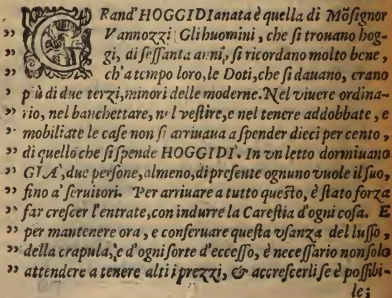 GRand'HOGGIDIanata è quella di Mõsignor
” Vannozzi: Gli huomini, che ſi trouano hog-
” gi, di ſeſſanta anni, ſi ricordano molto bene,
” ch'a tempo loro, le Doti, che ſi dauano, erano
” più di due terzi, minori delle moderne. Nel viuere ordina-
” rio, nel banchettare, nel veſtire, e nel tenere addobbate, e
” mobiliate le caſe non ſi arriuaua a ſpender dieci per cento,
” di quello che ſi ſpende HOGGIDI. In vn letto dormiuano
” GIA, due perſone, almeno, di preſente ognuno vuole il ſuo,
” fino a' ſeruitori. Per arriuare a tutto queſto, è ſtato forza
” far creſcer l'entrate, con indurre la Careſtia d'ogni coſa. E
” per mantenere ora, e conſeruare queſta vſanza del luſſo,
” della crapula, e d'ogni ſorte d'ecceſſo, è neceſſario non ſolo
” attendere a tenere alti i prezzi, & accreſcerli ſe è poſſibi-
le;